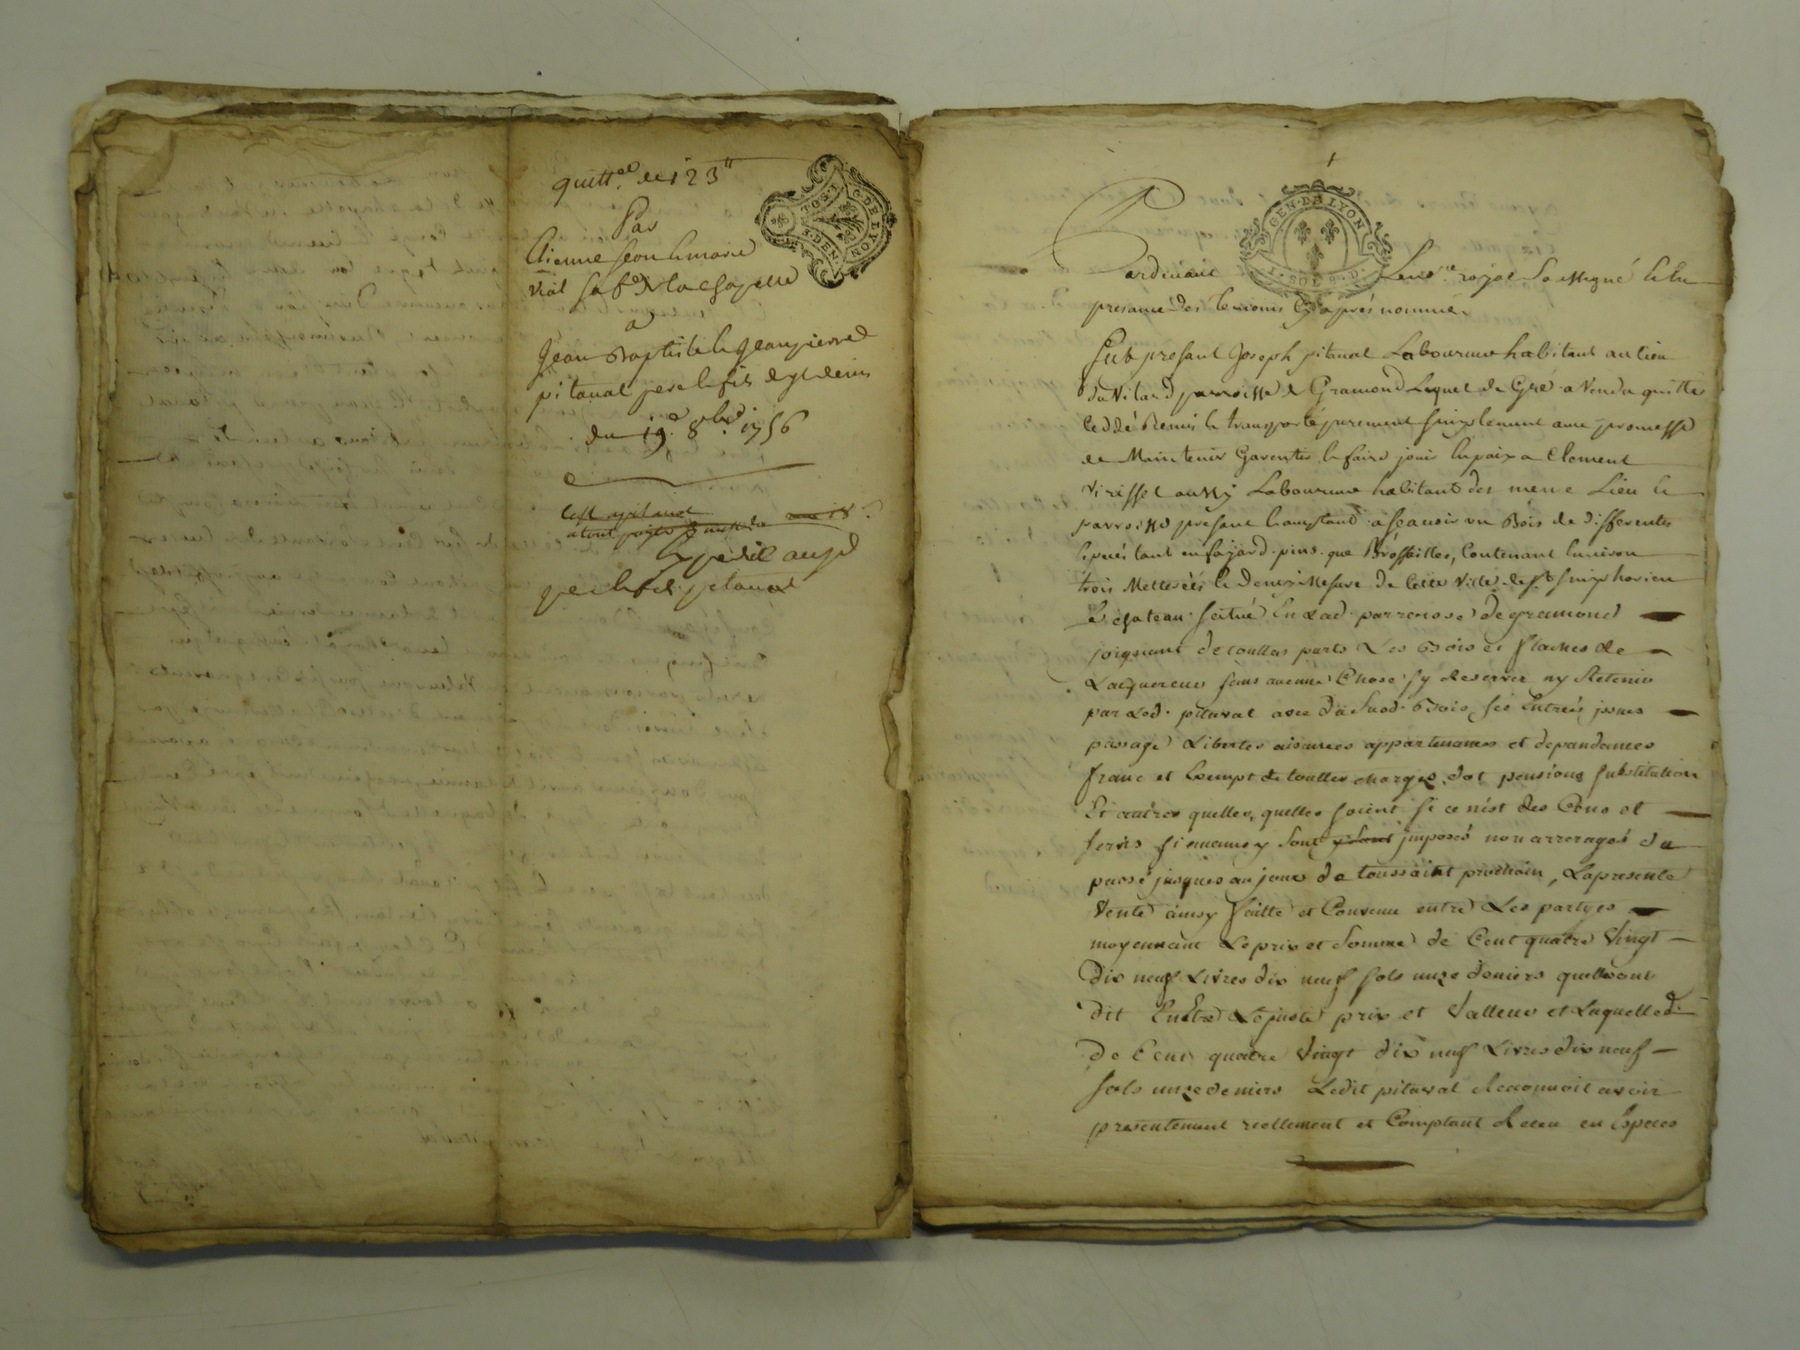 quitt.ce de 123"
Par
Etienne Jean Lemoine
vial sa f.e de la chapelle
a
Jean Baptiste & Jean pierre
pitaval pere & fils de st denis
du 19.e 8bre 1756
expedié aud
pere & fils pitaval
GEN. DE LYON
G. DE LYON
Pardevant le no.re royal soussigné & en
presance des temoins cy apres nommés
fut presant Joseph pitaval Laboureur habitant au lieu
du Vilard parroisse de Gramond Lequel de Gré a Vendu quitté
ceddé Remis & transporté purement simplement avec promesse
de Maintenir Garentir & faire jouir en paix a Clement
Virissel aussy Laboureur habitant des meme Lieu &
parroisse presant & acceptant a scavoir un Bois de differentes
especes tant en fayard pins que Brossailles, Contenant environ
trois Metterées & demy Mesure de cette Ville de St Simphorien
le chateau scitué En Lad parroisse de gramond
joignant de touttes parts Les Bois et flaches de
Lacquereur sans aucune Chose sy Reserver ny Retenir
par Led. pitaval avec du susd. Bois, ses Entrées issues
passage Libertes aisances appartenances et dependances
franc et Exempt de touttes charges dot pensions substitution
Et autres quelles, quelles soient si ce n'est des Cens et
servis si aucuns y sont y sont imposés non arreragés du
passé jusques au jour de toussaint prochain, La presente
Vente ainsy faitte et Convenu entre Les partyes
moyennant Le prix et Somme de Cent quatre Vingt
Dix neuf Livres dix neuf sols unze deniers quelles ont
dit Entre Le juste prix et Valleur et Laquelle d.
De Cent quatre Vingt dix neuf Livres dix neuf
sols unze deniers Ledit pitaval Reconnoit avoir
presentement reellement et Comptant Receu en Especes